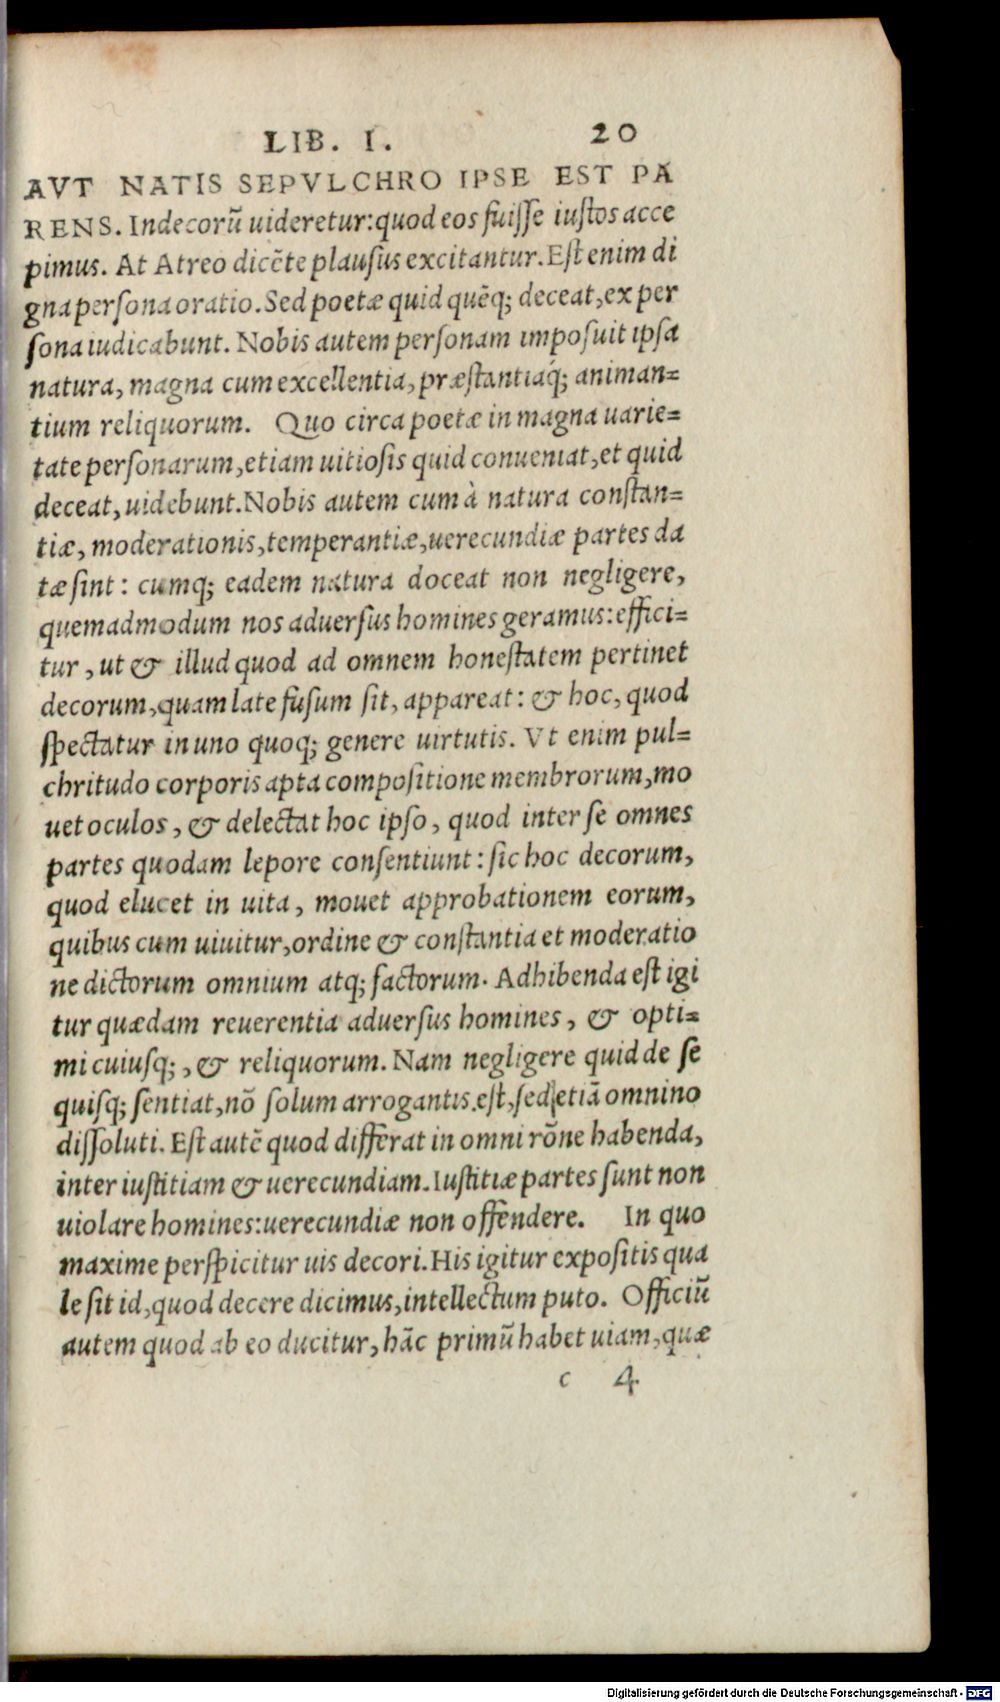 LIB. I. 20
AVT NATIS SEPVLCHRO IPSE EST PA
RENS. Indecorũ uideretur:quod eos fuisse iustos acce
pimus. At Atreo dicẽte plausus excitantur. Est enim di
gna persona oratio. Sed poetæ quid quẽq; deceat,ex per
sona iudicabunt. Nobis autem personam imposuit ipsa
natura, magna cum excellentia, præstantiaq́; animan=
tium reliquorum. Quo circa poetæ in magna uarie=
tate personarum,etiam uitiosis quid conueniat,et quid
deceat, uidebunt. Nobis autem cum à natura constan=
tiæ, moderationis,temperantiæ,uerecundiæ partes da
tæ sint: cumq; eadem natura doceat non negligere,
quemadmodum nos aduersus homines geramus:effici=
tur, ut & illud quod ad omnem honestatem pertinet
decorum,quam late fusum sit, appareat: & hoc, quod
spectatur in uno quoq; genere uirtutis. Vt enim pul=
chritudo corporis apta compositione membrorum,mo
uet oculos, & delectat hoc ipso, quod inter se omnes
partes quodam lepore consentiunt: sic hoc decorum,
quod elucet in uita, mouet approbationem eorum,
quibus cum uiuitur,ordine & constantia et moderatio
ne dictorum omnium atq; factorum. Adhibenda est igi
tur quædam reuerentia aduersus homines, & opti=
mi cuiusq;, & reliquorum. Nam negligere quid de se
quisq; sentiat,nõ solum arrogantis.est,sed etiã omnino
dissoluti. Est autẽ quod differat in omni rõne habenda,
inter iustitiam & uerecundiam. Iustitiæ partes sunt non
uiolare homines:uerecundiæ non offendere. In quo
maxime perspicitur uis decori. His igitur expositis qua
le sit id,quod decere dicimus,intellectum puto. Officiũ
autem quod ab eo ducitur, hãc primũ habet uiam,quæ
c 4
Digitalisierung gefördert durch die Deutsche Forschungsgemeinschaft - DFG